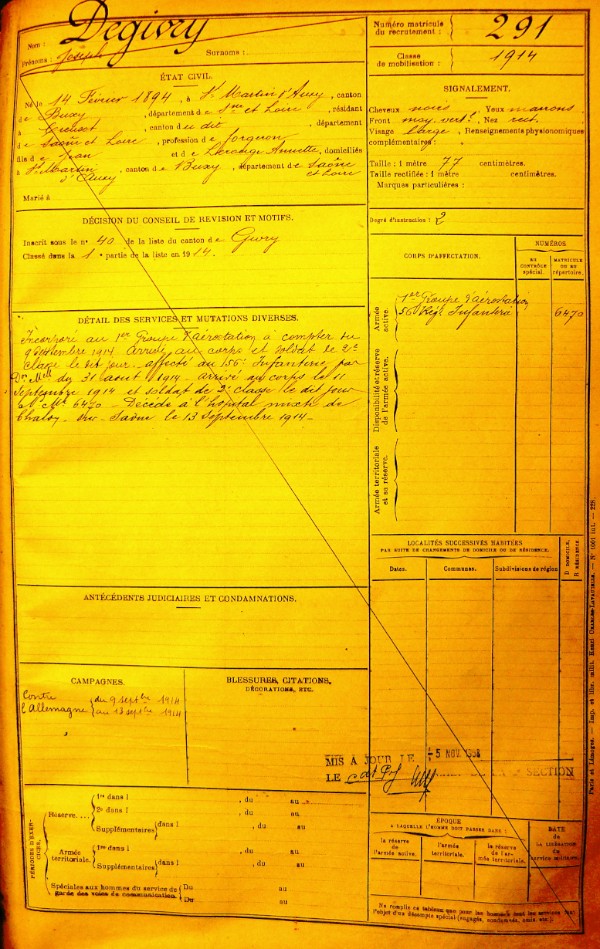 Nom :
Degivry
Prénoms : Joseph
Surnoms :
Numéro matricule
du recrutement :
291
Classe
de mobilisation :
1914
ÉTAT CIVIL.
Né le 14 Février 1894, à St Martin d'Auxy, canton
de Buxy, département de Sne et Loire, résidant
à Creusot, canton du dit, département
de Saône et Loire, profession de forgeron
fils de Jean et de Annette, domiciliés
à St Martin d'Auxy canton de Buxy, département de Saône et Loire
Marié à
SIGNALEMENT.
Cheveux noirs Yeux marrons
Front moy. vert. Nez rect.
Visage large, Renseignements physionomiques
complémentaires :
Taille : 1 mètre 77 centimètres.
Taille rectifiée : 1 mètre centimètres.
Marques particulières :
Degré d'instruction : 2
DÉCISION DU CONSEIL DE REVISION ET MOTIFS.
Inscrit sous le n° 40 de la liste du canton de Givry
Classé dans la 1e partie de la liste en 1914.
CORPS D'AFFECTATION.
NUMÉROS
AU CONTRÔLE spécial.
MATRICULE OU AU répertoire.
Armée active.
1er Groupe d'aérostation
56 Régt Infanterie
6470
Disponibilité et réserve de l'armée active.
Armée territoriale et sa réserve.
DÉTAIL DES SERVICES ET MUTATIONS DIVERSES.
Incorporé au 1er Groupe d'Aérostation à compter du
9 Septembre 1914. Arrivé au corps et soldat de 2e
classe le dit jour. affecté au 156e Infanterie par
du 31 août 1914 arrivé au corps le
Septembre 1914 et soldat de 2e classe le dit jour
Mle 6470. Décédé à l'hôpital mixte de
Chalon sur Saône le 13 Septembre 1914.
LOCALITÉS SUCCESSIVES HABITÉES
PAR SUITE DE CHANGEMENTS DE DOMICILE OU DE RÉSIDENCE.
Dates.
Communes.
Subdivisions de région
D DOMICILE,
R RÉSIDENCE
ANTÉCÉDENTS JUDICIAIRES ET CONDAMNATIONS.
CAMPAGNES.
Contre l'Allemagne
du 9 septbre 1914
au 13 septbre 1914
BLESSURES, CITATIONS,
DÉCORATIONS, ETC.
MIS A JOUR LE 5 NOV.
LE SECTION
PÉRIODES D'EXERCICES.
Réserve....
1re dans l , du au
2e dans l , du au
Supplémentaires dans l , du au
Armée territoriale.
1re dans l , du au
Supplémentaires dans l , du au
Spéciales aux hommes du service de
garde des voies de communication.
Du au
Du au
ÉPOQUE
A LAQUELLE L'HOMME DOIT PASSER DANS :
la réserve de l'armée active.
l'armée territoriale.
la réserve de l'armée territoriale.
DATE
DE LA LIBÉRATION
du service militaire.
Ne remplir ce tableau que pour les hommes dont les services font
l'objet d'un décompte spécial (engagés, condamnés, omis, etc.).
Paris et Limoges. — Imp. et libr. milit. Henri CHARLES-LAVAUZELLE.